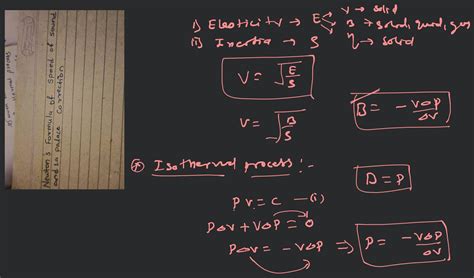 Newton's Formula of Speed of Sound
and Laplace Correction
i) Elasticity → E → Y → Solid
B → solid, liquid, gas
η → Solid
ii) Inertia → ρ
V = √E/ρ
V = √B/ρ
B = -VΔP/ΔV
Isothermal process :-
B = P
PV = C —(i)
PΔV + VΔP = 0
PΔV = -VΔP ⇒ P = -VΔP/ΔV